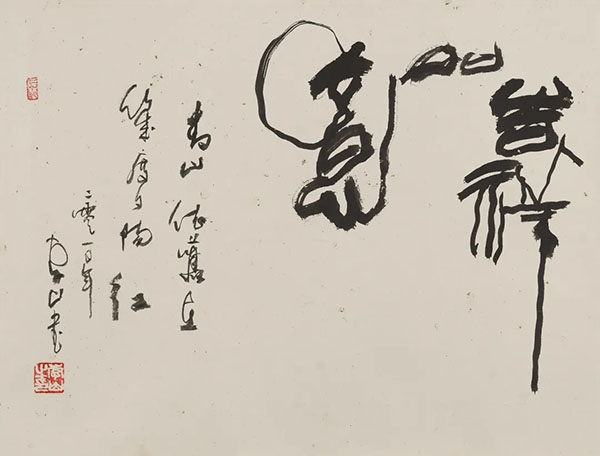 吉祥
如意
青山依舊在
幾度夕陽紅
二零一〇年
書